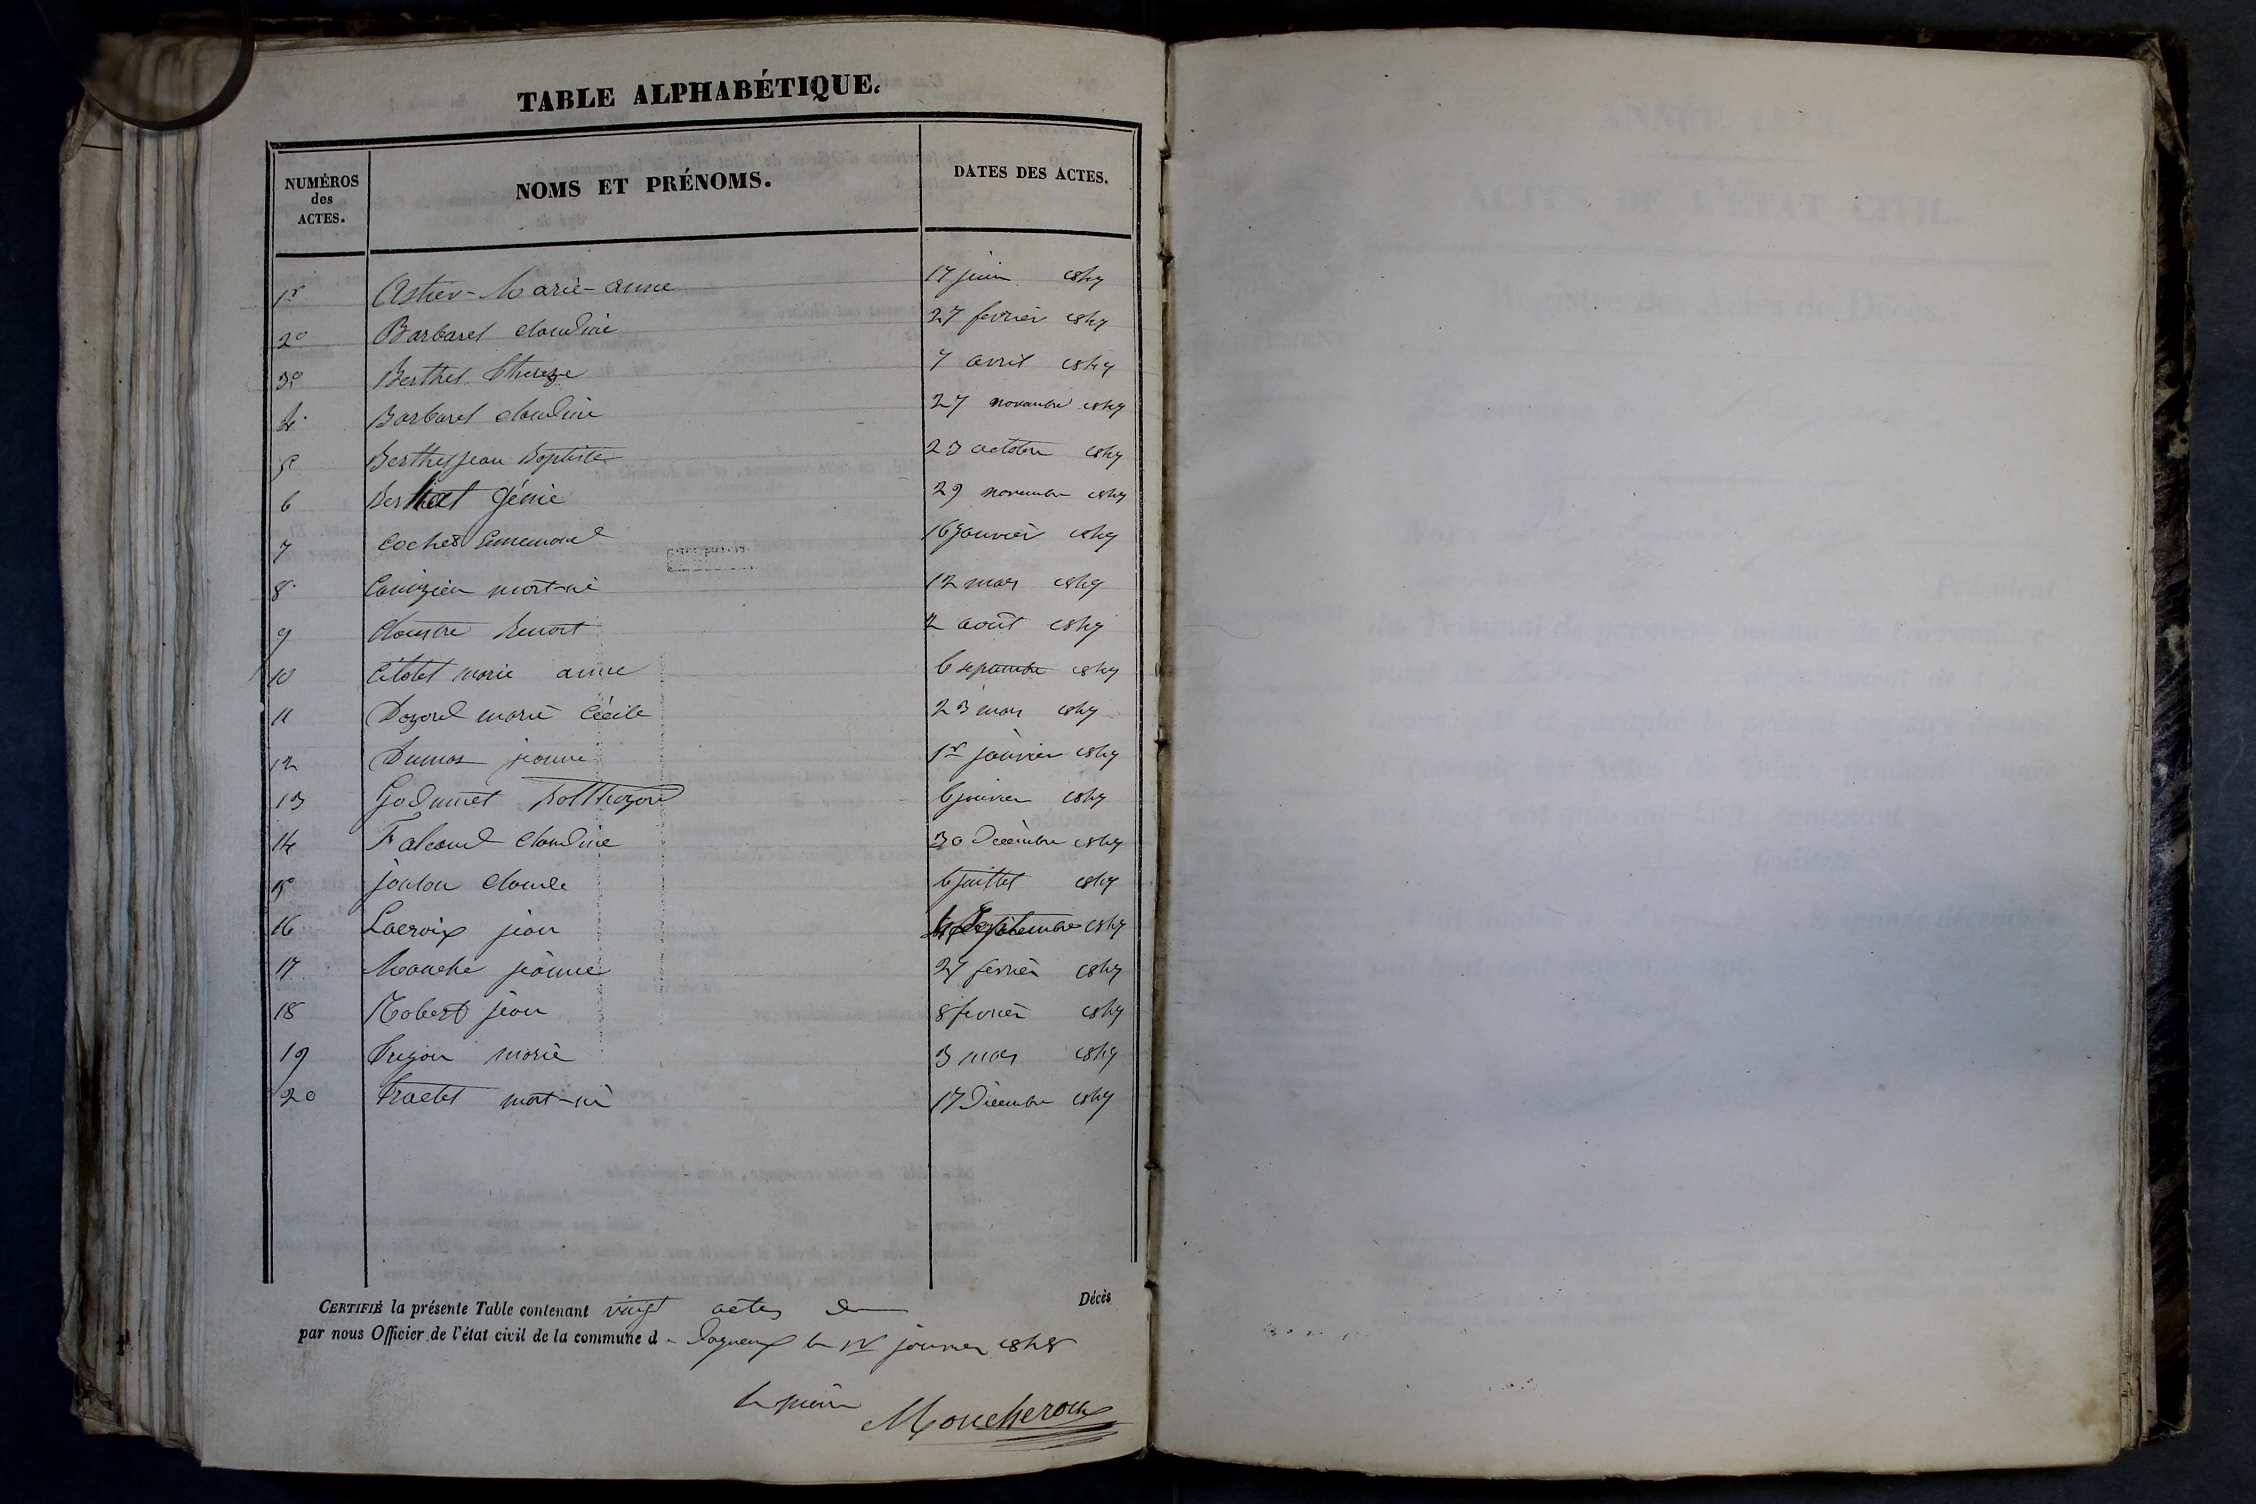 TABLE ALPHABÉTIQUE.
NUMÉROS des ACTES. NOMS ET PRÉNOMS. DATES DES ACTES.
1r Astier-Marie-anne 17 juin 1847
2o Barbaret claudine 27 fevrier 1847
3o Berthet Thereze 7 avril 1847
4. Barbaret claudine 27 novembre 1847
5o Berthet jean Baptiste 23 octobre 1847
6 Berthet Génie 29 novembre 1847
7 Cochet Ennemond 16 janvier 1847
8. mort-né 12 mars 1847
9 Benoit 2 août 1847
10 marie anne 6 septembre 1847
11 marie Cécile 23 mars 1847
12 Dumas jeanne 1r janvier 1847
13 Godimet 6 janvier 1847
14 Falcond claudine 30 Decembre 1847
15o claude 6 juillet 1847
16 Lacroix jean Septembre 1847
17 jeanne 27 fevrier 1847
18 Robert jean 8 fevrier 1847
19 marie 3 mars 1847
20 mort-né 17 Décembre 1847
CERTIFIÉ la présente Table contenant vingt actes de Décès
par nous Officier de l'état civil de la commune d - Dagneux le 1r janvier 1848
le maire Moucheroux